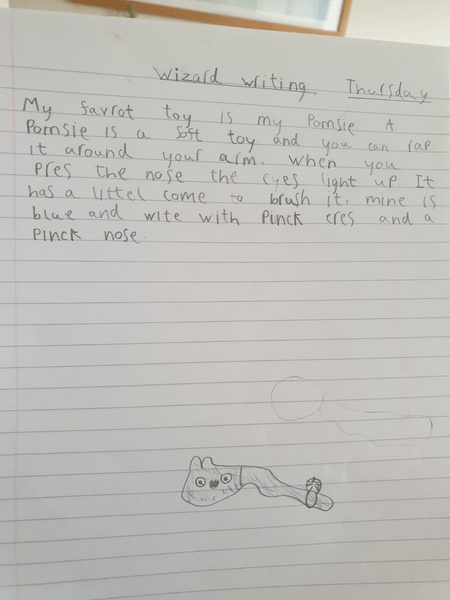 Wizard writing Thursday
My favrot toy is my Pomsie A
Pomsie is a soft toy and you can rap
it around your arm. When you
Pres the nose the eyes light up. It
has a littel come to brush it. mine is
blue and wite with Pinck eres and a
Pinck nose.